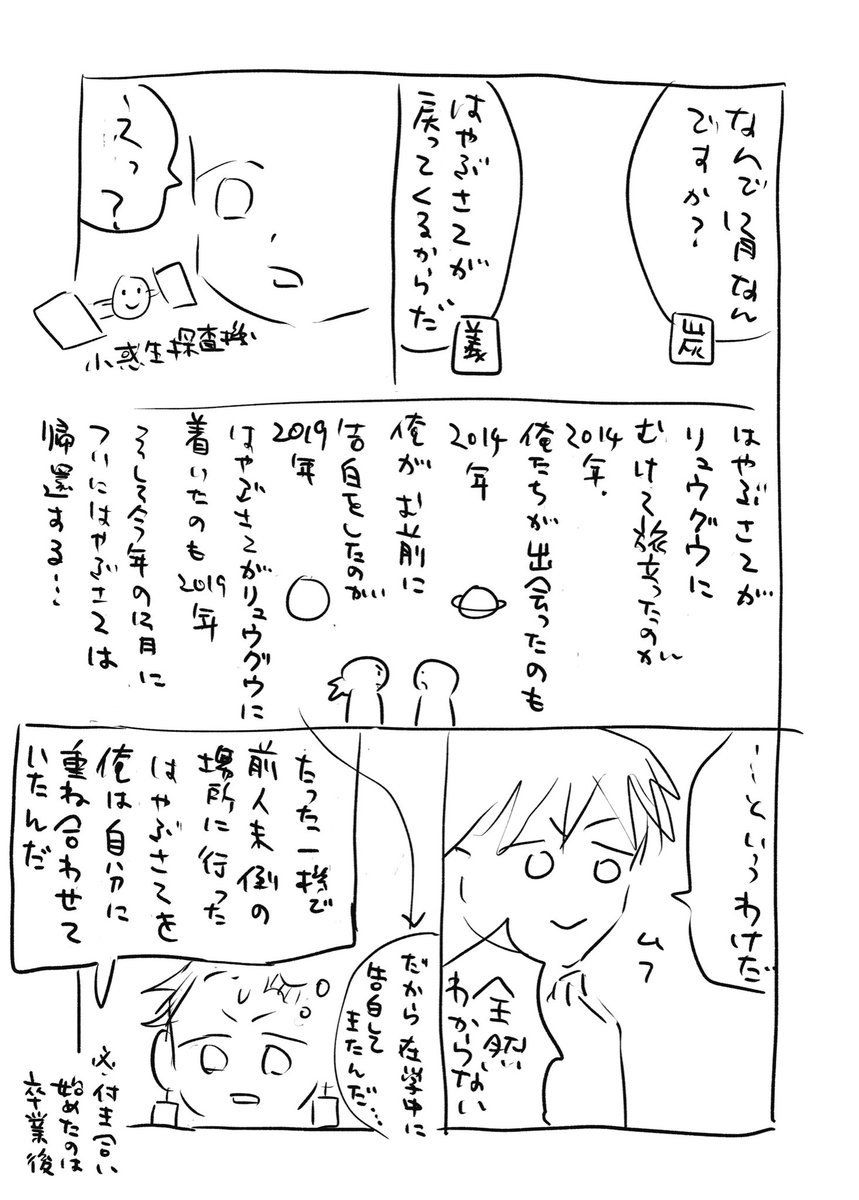 なんで12月なん
ですか?
炭
はやぶさ2が
戻ってくるからだ
義
えっ?
小惑生探査機
はやぶさ2が
リュウグウに
むけて旅立ったのが
2014年.
俺たちが出会ったのも
2014年
俺がお前に
告白をしたのが
2019年
はやぶさ2がリュウグウに
着いたのも2019年
そして今年の12月に
ついにはやぶさ2は
帰還する…
…というわけだ
ムフ
全然
わからない
だから在学中に
告白して
きたんだ…
たった一機で
前人未倒の
場所に行った
はやぶさ2を
俺は自分に
重ね合わせて
いたんだ
※付き合い
始めたのは
卒業後